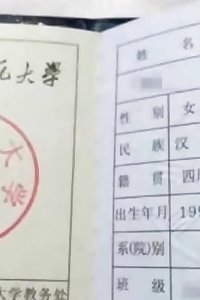 大學
大学
大学教务处
姓 名
性 别 女
民 族 汉
籍 贯 四
出生年月 199
系(院)别
班 级